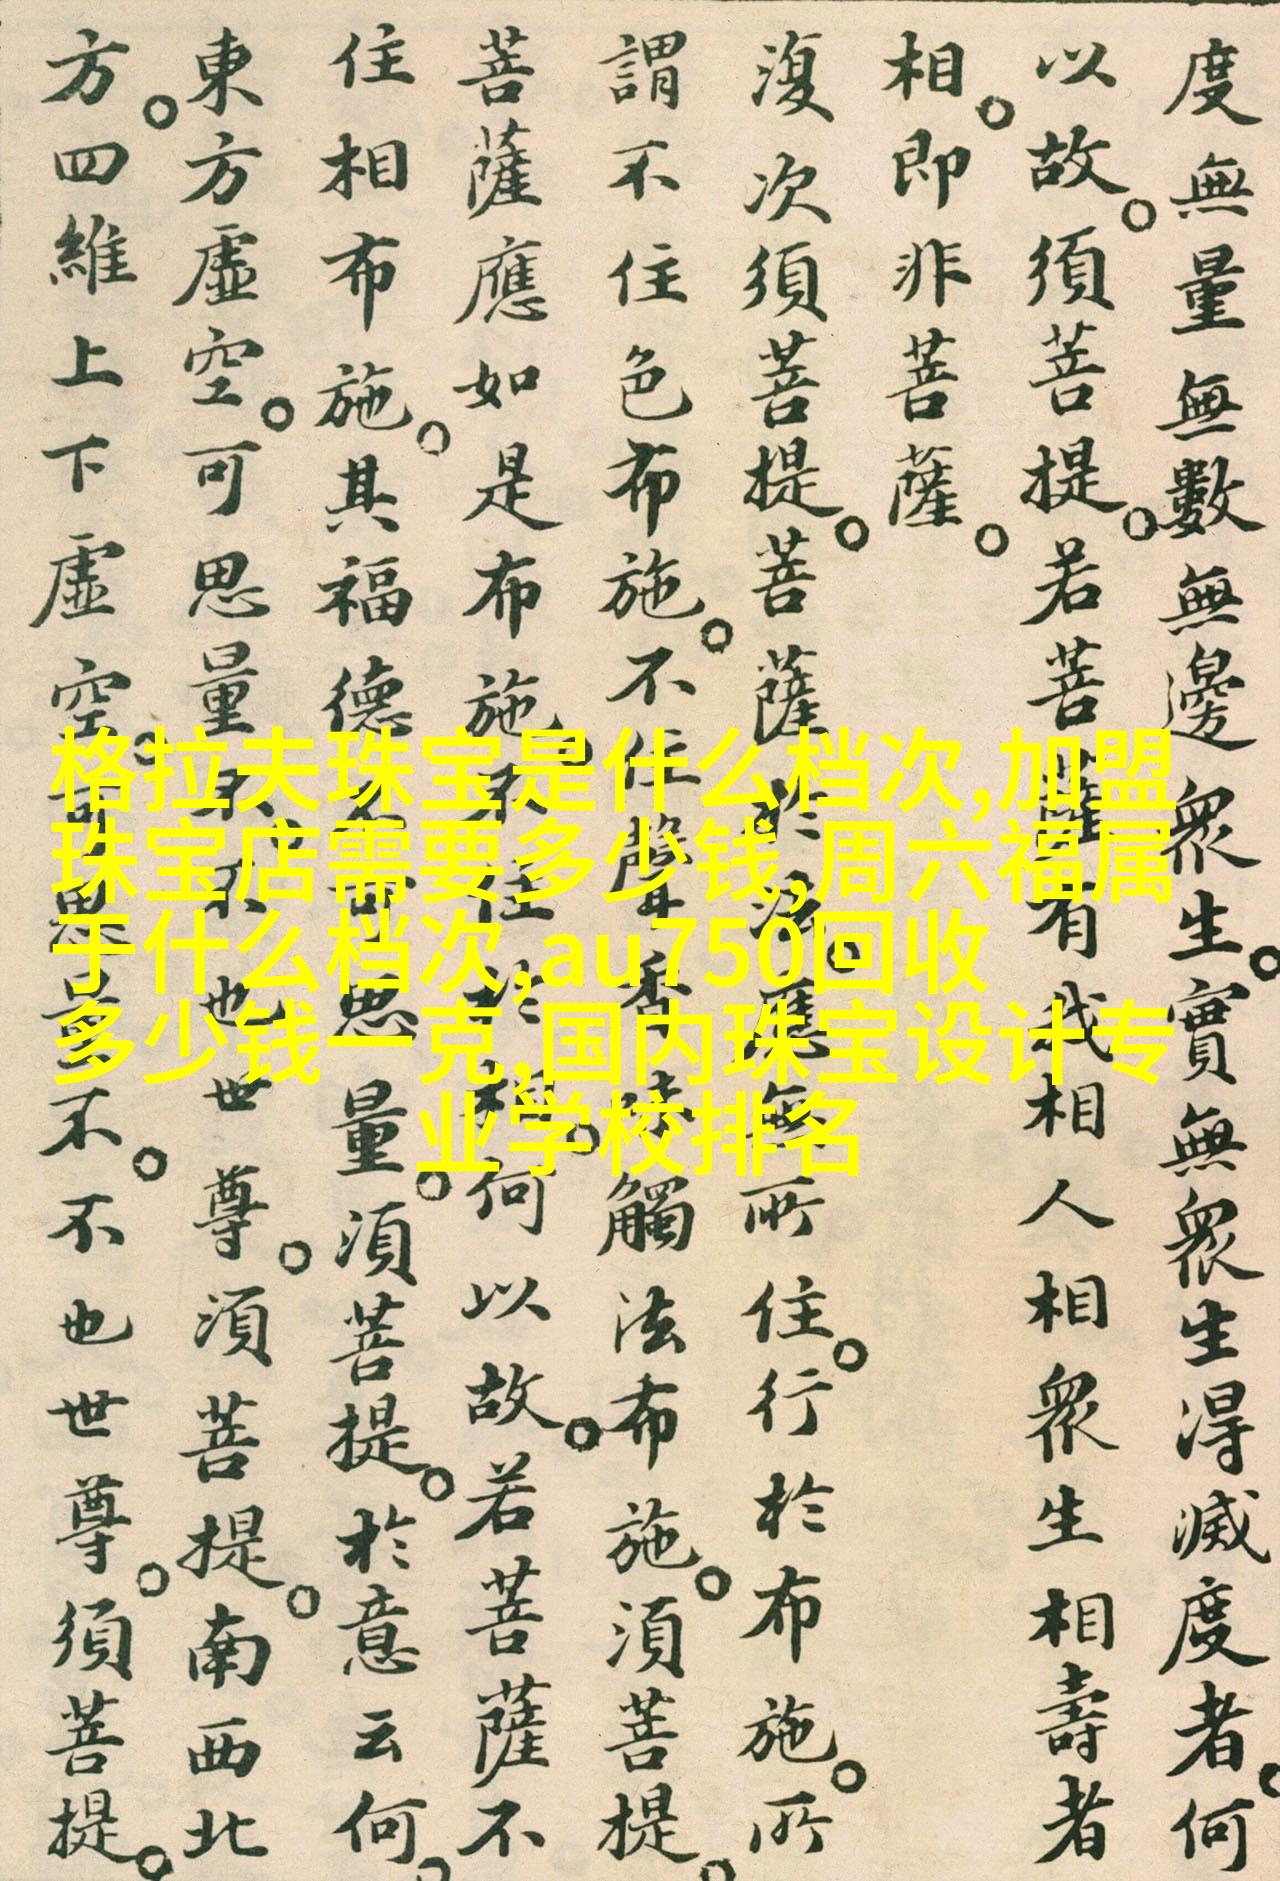 度無量無數無邊眾生。實無眾生得滅度者。何
以故。須菩提。若菩薩有我相人相眾生相壽者
相。即非菩薩。
復次須菩提。菩薩於法。應無所住。行於布施。所
謂不住色布施。不住聲香味觸法布施。須菩提。
菩薩應如是布施。不住於相。何以故。若菩薩不
住相布施。其福德不可思量。須菩提。於意云何。
東方虛空。可思量不。不也世尊。須菩提。南西北
方。四維上下虛空。可思量不。不也世尊。須菩提。
格拉夫珠宝是什么档次,加盟
珠宝店需要多少钱,周六福属
于什么档次,au750回收
多少钱一克,国内珠宝设计专
业学校排名